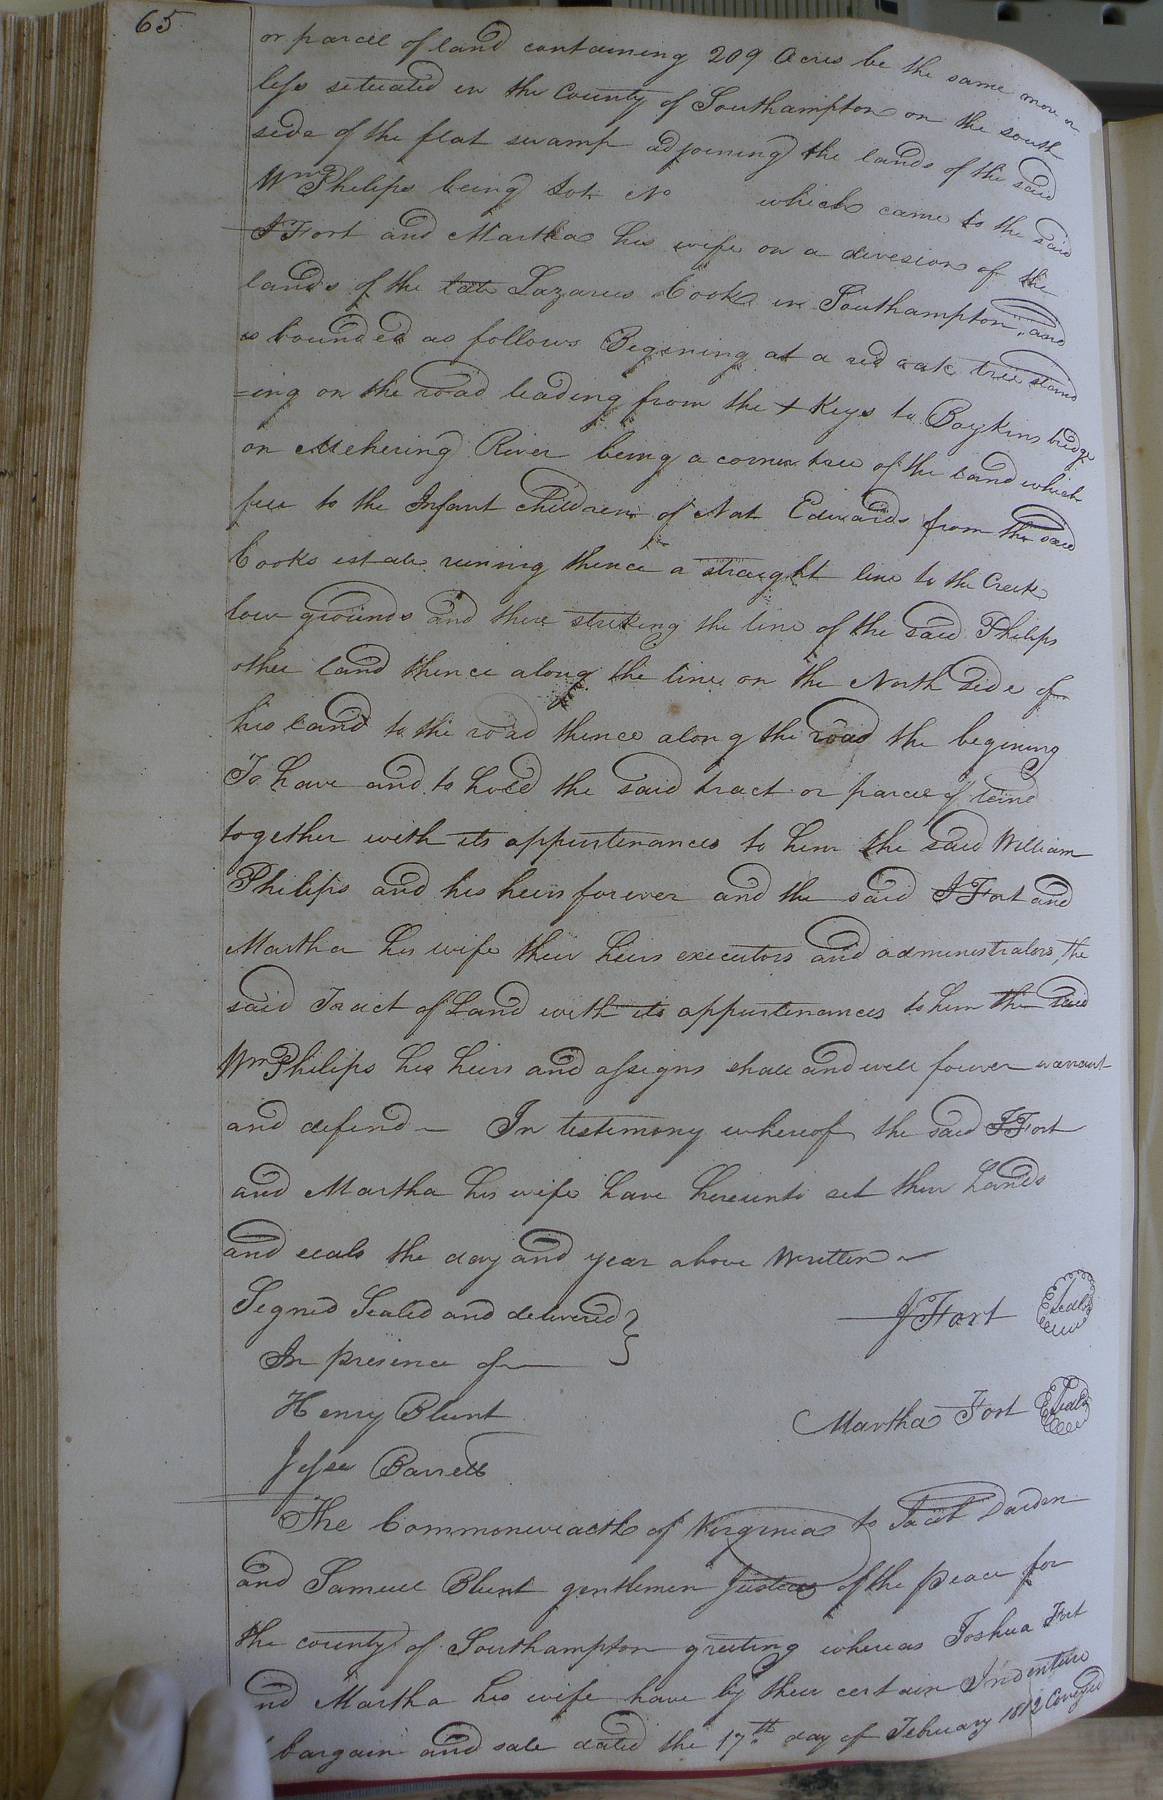 65
or parcel of land containing 209 Acres be the same more or
less situated in the County of Southampton on the south
side of the flat swamp adjoining the lands of the said
Wm Philips being Lot No which came to the said
J Fort and Martha his wife on a division of the
lands of the late Lazarus Cooke in Southampton, and
is bounded as follows Begining at a red oak tree stand
=ing on the road leading from the + Keys to Boykins bridge
on Meherring River being a corner tree of the land which
fell to the Infant Children of Nat Edwards from the said
Cooks estate runing thence a straight line to the Creek
low grounds and there striking the line of the said Philips
other land thence along the line on the North Side of
his land to the road thence along the road the begining
To have and to hold the said tract or parcel of land
together with its appurtenances to him the said William
Philips and his heirs forever and the said J Fort and
Martha his wife their heirs executors and administrators, the
said Tract of Land with its appurtenances to him the said
Wm Philips his heirs and assigns shall and will forever warrant
and defend — In testimony whereof the said J Fort
and Martha his wife have hereunto set their hands
and seals the day and year above Written
Signed Sealed and delivered }
J Fort Seal
In presence of
Henry Blunt
Martha Fort Seal
Jesse Barrett
The Commonwealth of Virginia to Jacob Darden
and Samuel Blunt gentlemen Justices of the peace for
the county of Southampton greeting whereas Joshua Fort
and Martha his wife have by their certain Indenture
bargain and sale dated the 17th day of February 1812 Conveyed